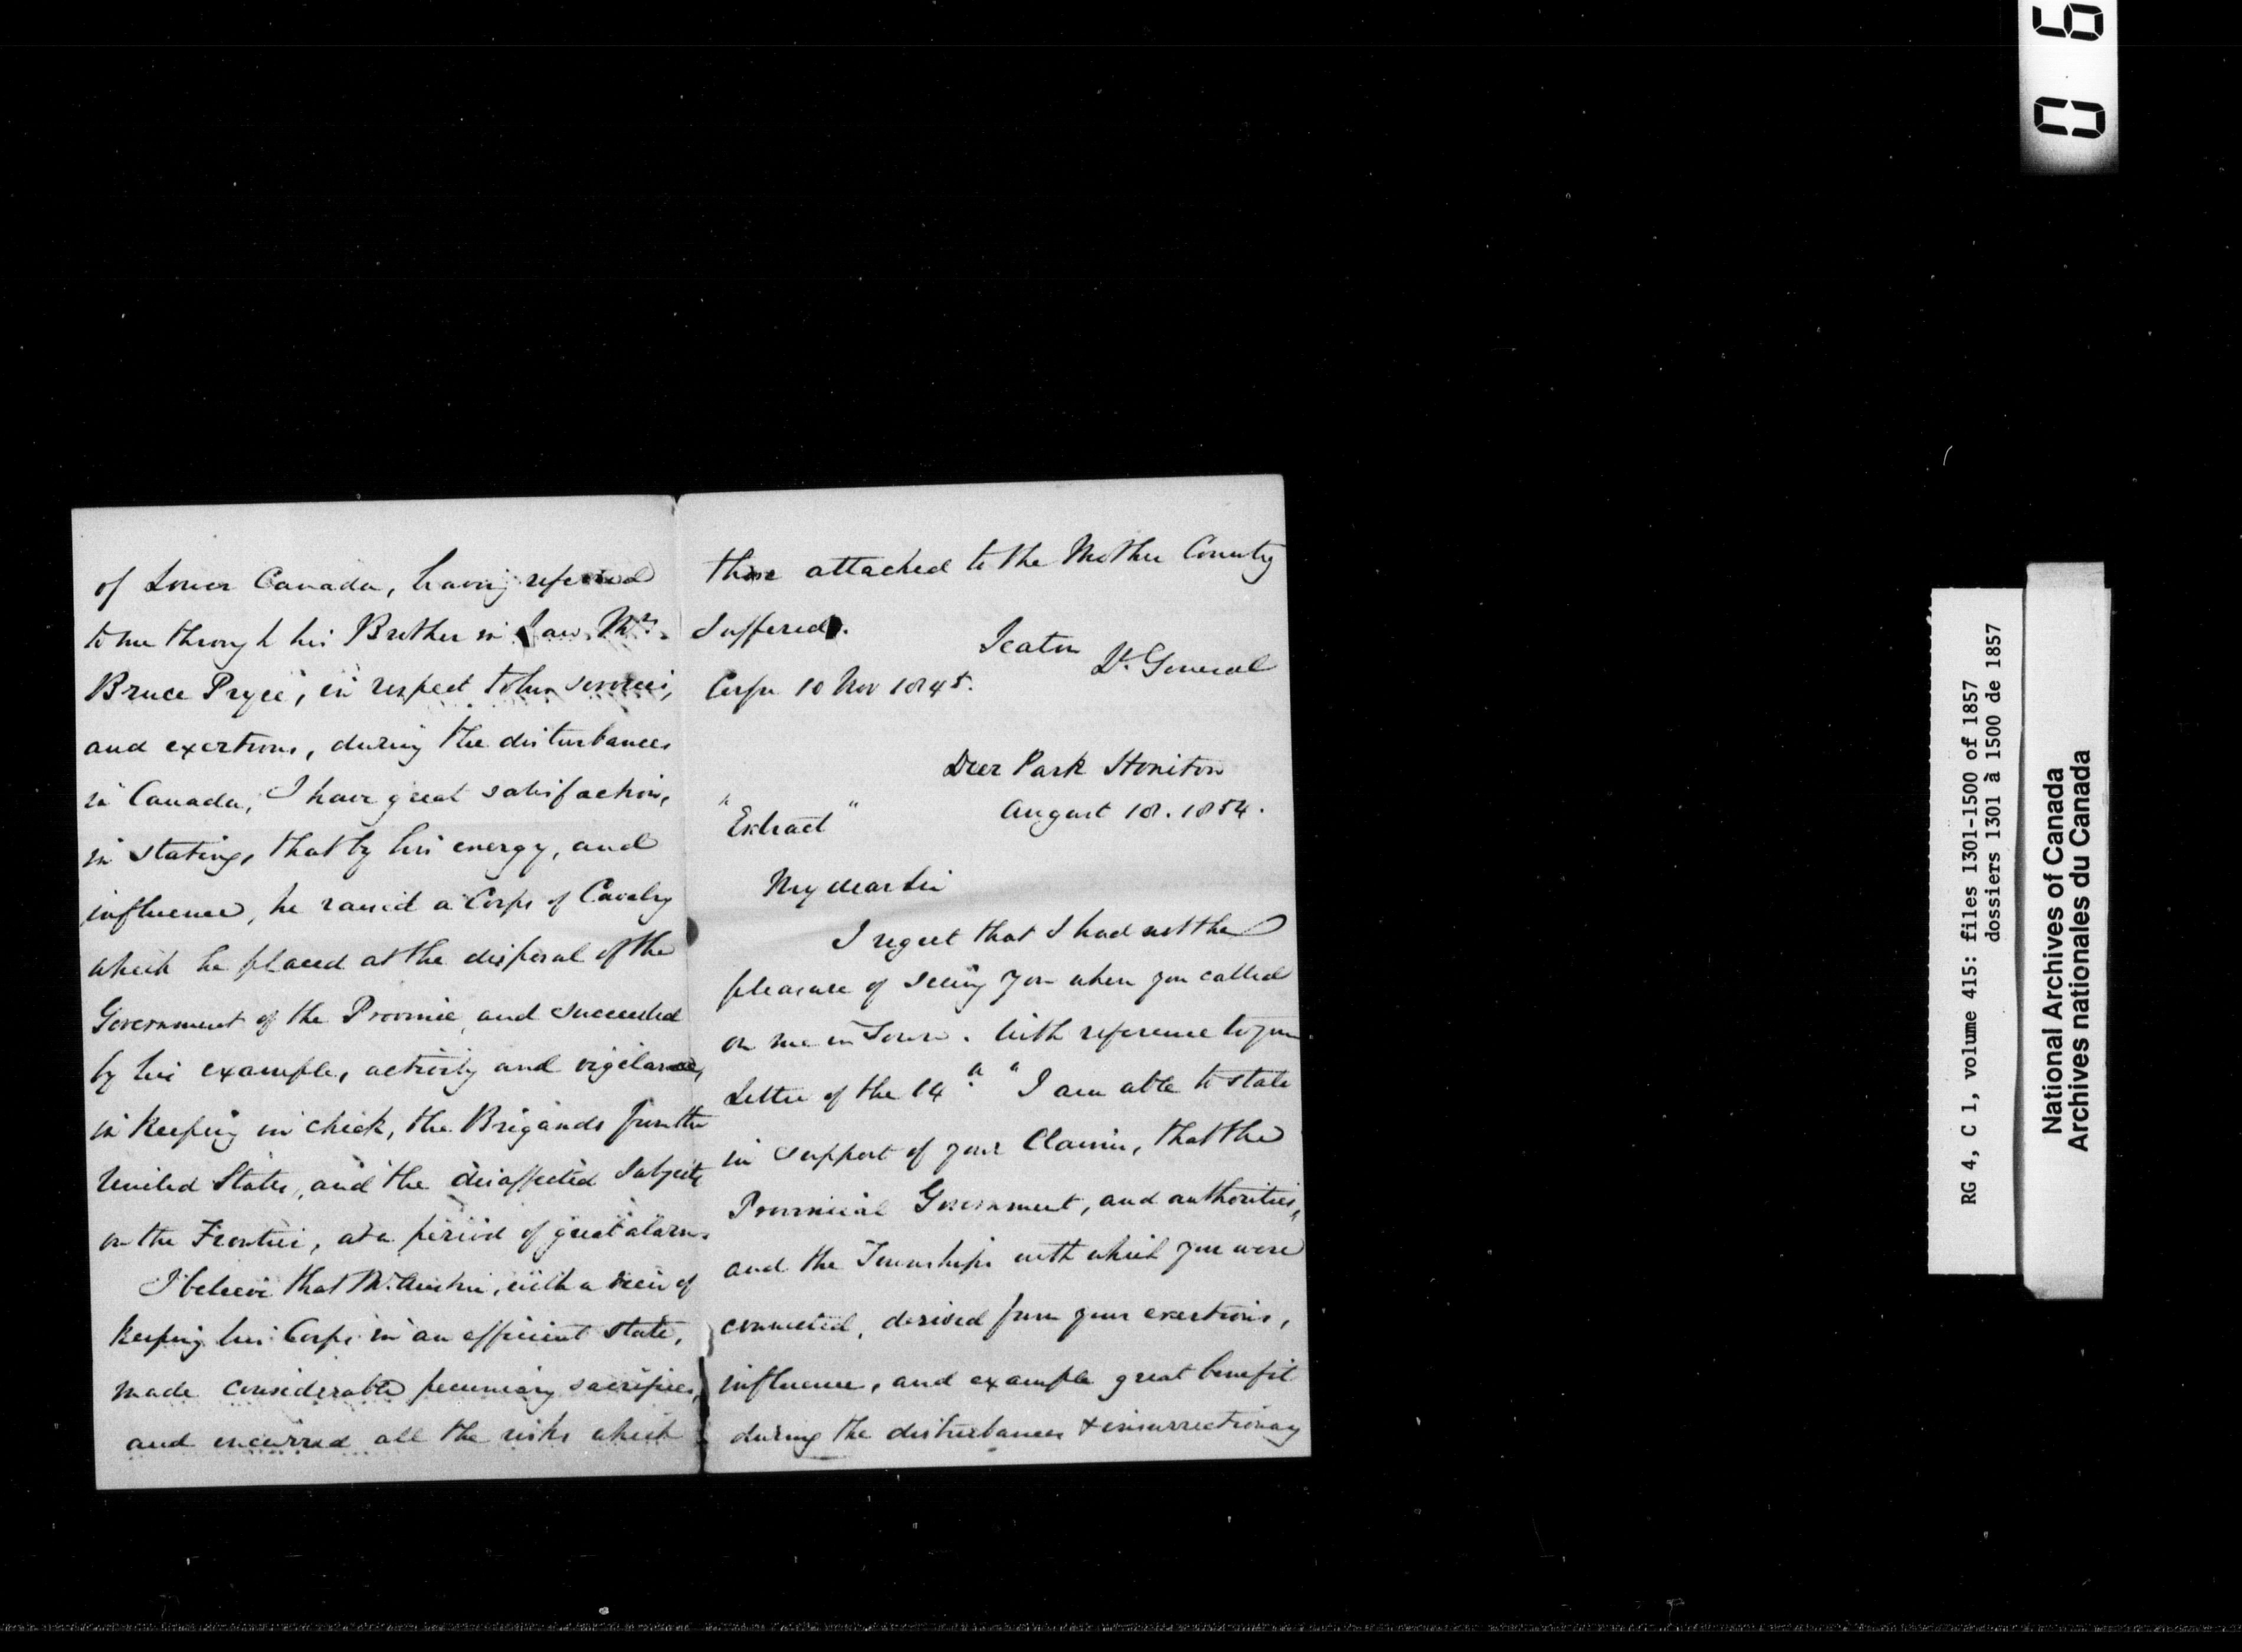 of Lower Canada, having referred
to me through his Brother in Law Mr.
Bruce Pryce, in respect to his services,
and exertions, during the disturbances
in Canada, I have great satisfaction,
in stating, that by his energy, and
influence, he raised a Corps of Cavalry
which he placed at the disposal of the
Government of the Province and succeeded
by his example, activity and vigilance,
in keeping in check, the Brigands from the
United States, and the disaffected Subjects
on the Frontier, at a period of great alarm.
I believe that Mr. Austin, with a view of
keeping his Corps in an efficient state,
made considerable pecuniary sacrifices,
and incurred all the risks which
those attached to the Mother Country
suffered.
Seaton
Lt. General
Corfu 10 Nov 1845.
Deer Park Honiton
"Extract"
August 18. 1854.
My dear Sir
I regret that I had not the
pleasure of seeing you when you called
on me in Town. With reference to your
Letter of the 14 " " I am able to state
in support of your Claim, that the
Provincial Government, and authorities,
and the Townships with which you were
connected, derived from your exertions,
influence, and example great benefit
during the disturbances & insurrectionary
0 6
RG 4, C 1, volume 415: files 1301-1500 of 1857
dossiers 1301 à 1500 de 1857
National Archives of Canada
Archives nationales du Canada